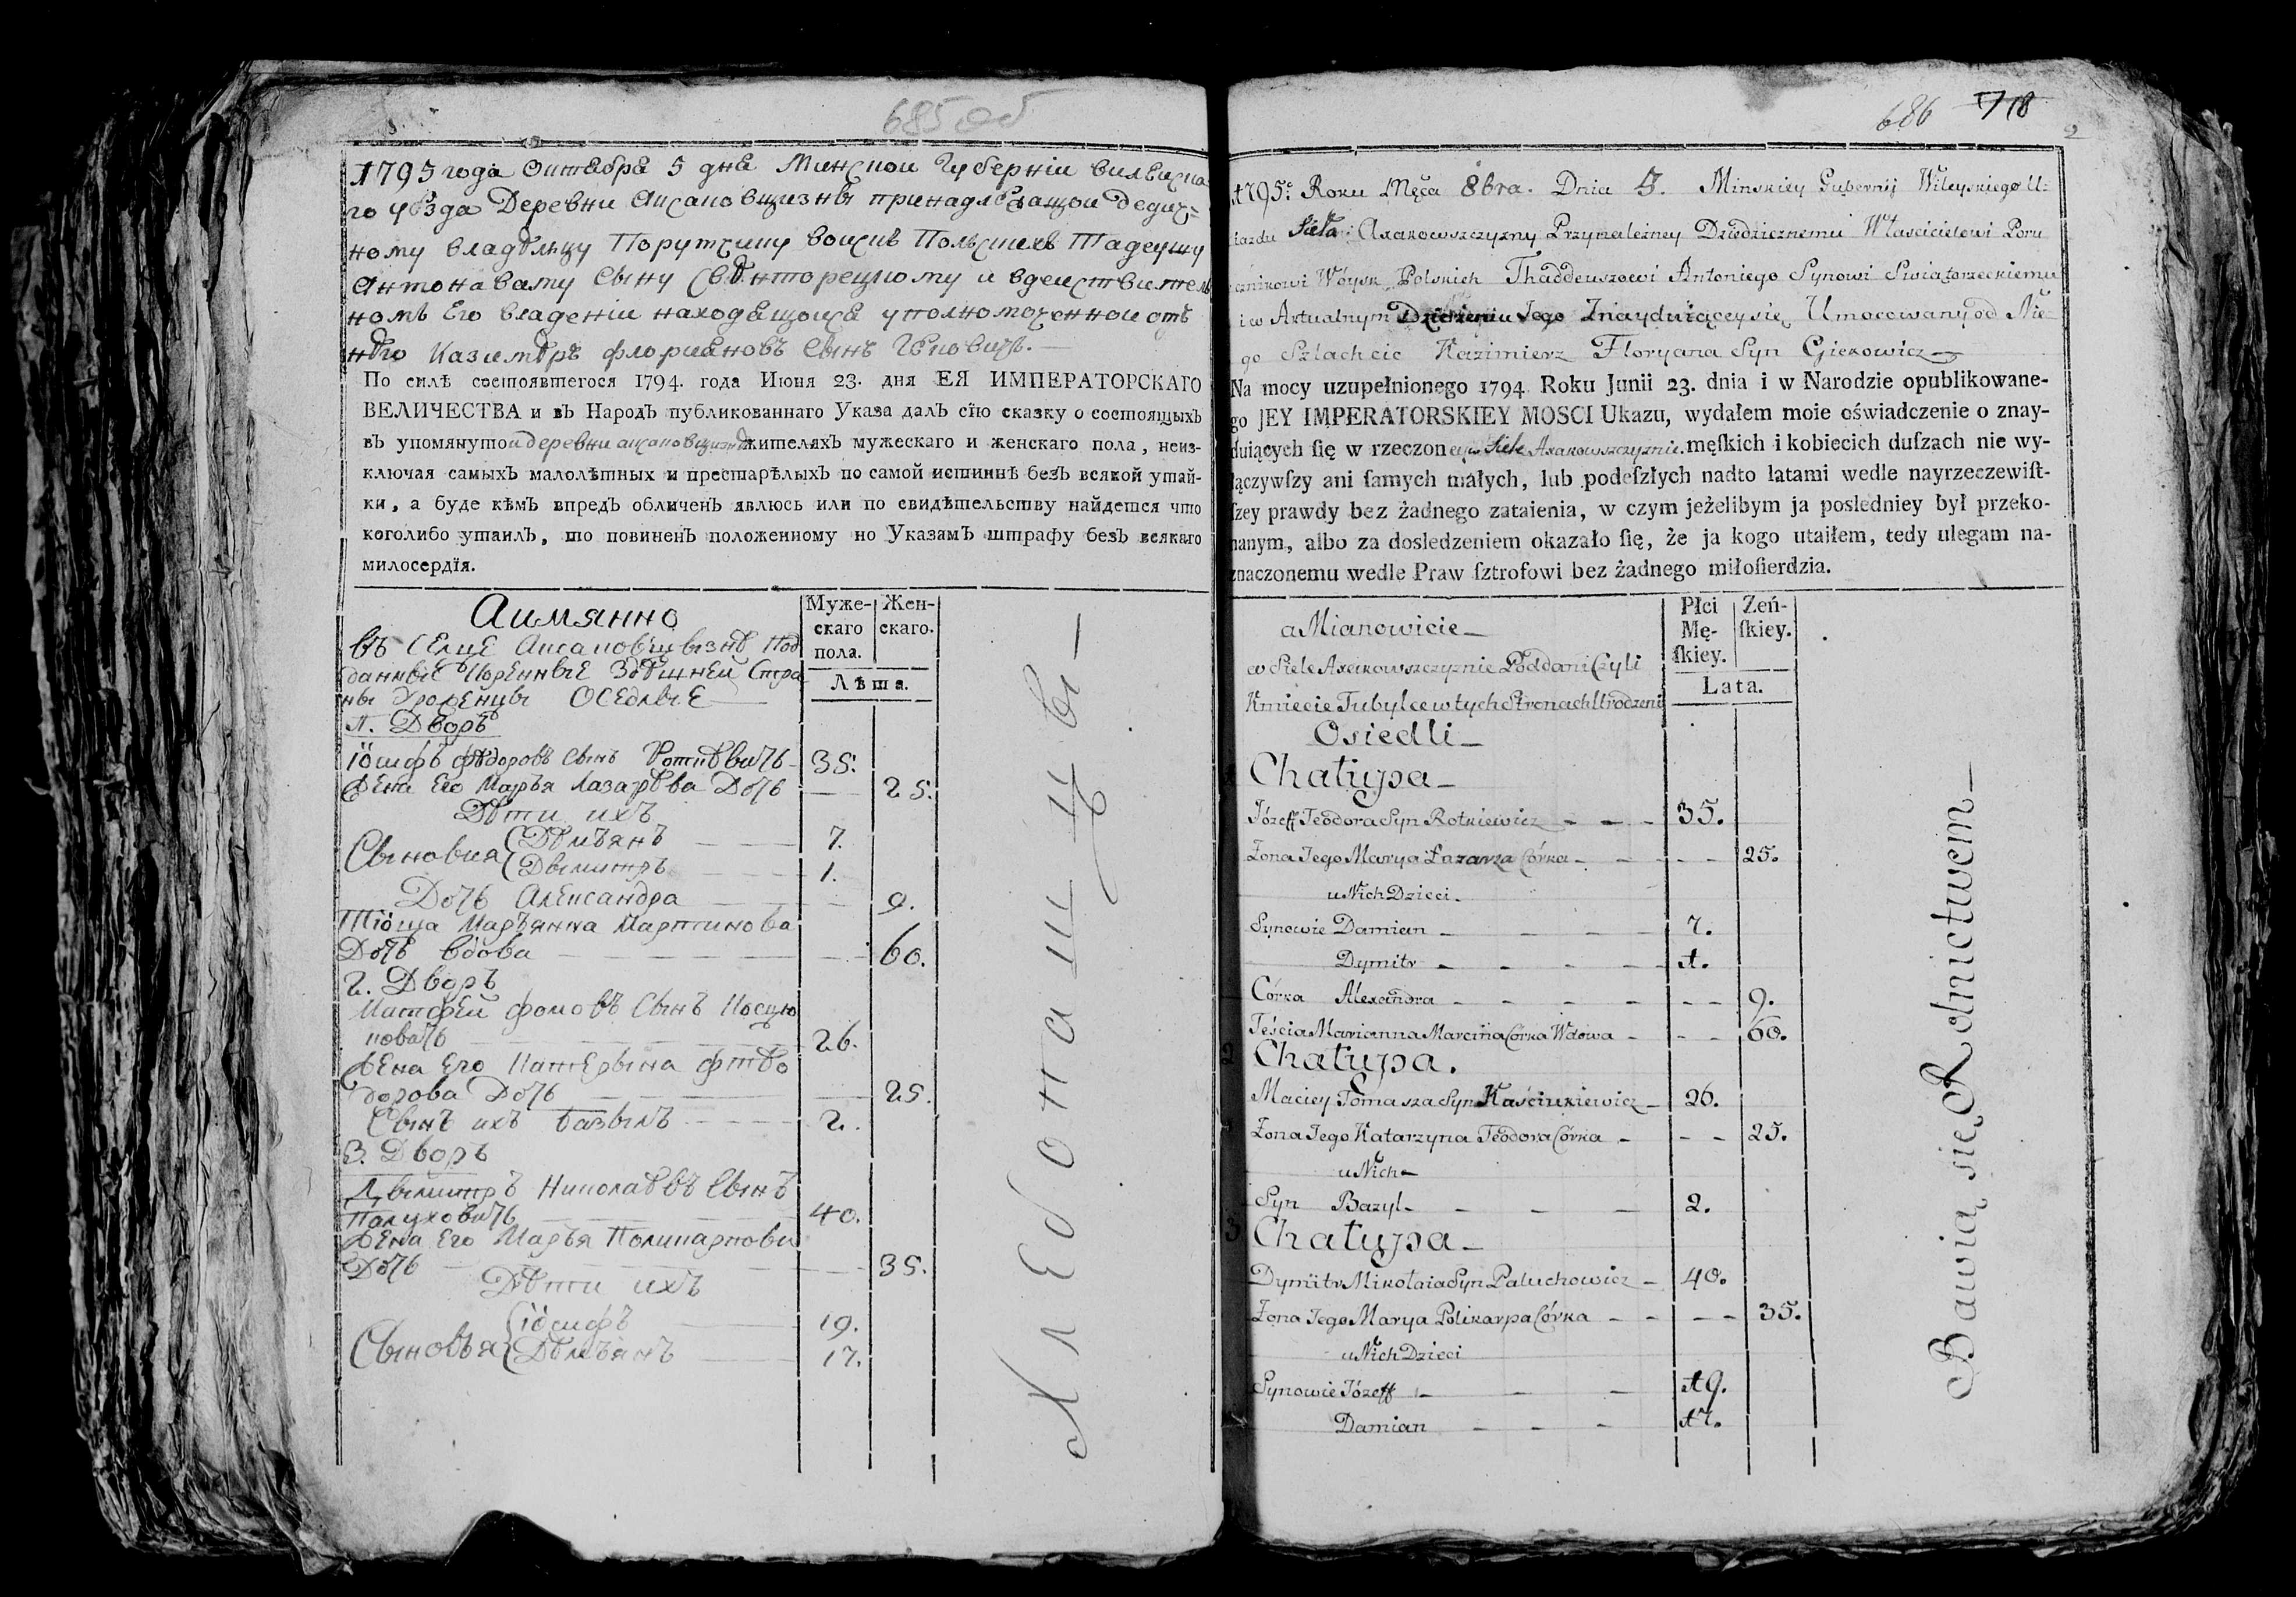 685 об
1795 года Октября 5 дня Минской Губернїи Вилейска
го уѣзда Деревни Аксаковщизны принадлежащой дедич=
ному владѣльцу Поручику воискъ Польскихъ Тадеушу
Антонавому Сыну Свѣнторецкому и вдеиствитель
номъ Его владенїи находящоися уполномоченнои отъ
нѣго Казимѣръ Флориановъ Сынъ
По силѣ состоявшегося 1794. года Июня 23. дня ЕЯ ИМПЕРАТОРСКАГО
ВЕЛИЧЕСТВА и въ Народъ публикованнаго Указа далъ сїю сказку о состоящыхъ
въ упомянутои деревни аксаковщизнѣ жителяхъ мужескаго и женскаго пола, неиз-
ключая самыхъ малолѣтныхъ и престарѣлыхъ по самой истиннѣ безъ всякой утай-
ки, а буде кѣмъ впредь обличенъ явлюсь или по свидѣтельству найдется что
коголибо утаилъ, то повиненъ положенному но Указамъ штрафу безъ всякаго
милосердїя.
Аимянно
Муже-
скаго
пола.
Жен-
скаго.
Лѣта.
въ Селце Аксаковщызнѣ Под
данные Коренные Здѣшней Стра
ны Уроженцы ОСЕДЛЫЕ
1. Дворъ
Іосифъ Фѣдоровъ Сынъ Роткѣвичь 35.
Жена Его Марья Лазарѣва Дочь 25.
Дѣти ихъ
Сыновия Дѣмъянъ 7.
Дымитръ 1.
Дочь Александра 9.
Тіоща Маръянна Мартинова
Дочь вдова 60.
2. Дворъ
Матфей Фомовъ Сынъ Косцю
ковичь 26.
Жена Его Катерына Фѣо
дорова Дочь 25.
Сынъ ихъ Базылъ 2.
3. Дворъ
Дымитръ Николаѣвъ Сынъ
Палуховичь 40.
Жена Его Маръя Поликарпова
Дочь 35.
Дѣти ихъ
Сыновъя Іосифъ 19.
Дѣмъянъ 17.
Хлебопашцы
686 718
1795.º Roku Męca 8bra. Dnia 5. Minskiey Gubernij Wileyskiego U:
iazdu Sieła Axakowszczyzny Przynależney Dziedzicznemu Własćicielowi Poru
cznikowi Wóysk Polskich Thaddeuszowi Antoniego Synowi Swiątorzeckiemu
i w Aktualnym Dzierzeniu Jego Znayduiącey się Umocowany od Nie=
go Szlachcic Kazimierz Floryana Syn Gierowicz
Na mocy uzupełnionego 1794 Roku Junii 23. dnia i w Narodzie opublikowane-
go JEY IMPERATORSKIEY MOSCI Ukazu, wydałem moie oświadczenie o znay-
duiących ſię w rzeczoney w Siele Axakowszczyznie męſkich i kobiecich duſzach nie wy-
łączywſzy ani ſamych małych, lub podeſzłych nadto latami wedle nayrzeczewiſt-
ſzey prawdy bez żadnego zataienia, w czym jeżelibym ja posledniey był przeko-
nanym, albo za dosledzeniem okazało ſię, że ja kogo utaiłem, tedy ulegam na-
znaczonemu wedle Praw ſztrofowi bez żadnego miłoſierdzia.
a Mianowicie
Płci
Mę-
ſkiey.
Zeń-
ſkiey.
Lata.
w Siele Axakowszczyznie Poddani Czyli
Kmiecie Tubylce w tych Stronach Urodzeni
Osiedli
1 Chałupa
Józeff Teodora Syn Rotkiewicz 35.
Zona Jego Marya Łazarza Córka 25.
u Nich Dzieci.
Synowie Damian 7.
Dymitr 1.
Córka Alexandra 9.
Teścia Marianna Marcina Córka Wdowa 60.
2 Chałupa.
Maciey Tomasza Syn Kaściukiewicz 26.
Zona Jego Katarzyna Teodora Córka 25.
u Nich
Syn Bazyl 2.
3 Chałupa
Dymitr Mikołaia Syn Paluchowicz 40.
Zona Jego Marya Polikarpa Córka 35.
u Nich Dzieci
Synowie Józeff 19.
Damian 17.
Bawią się Rolnictwem